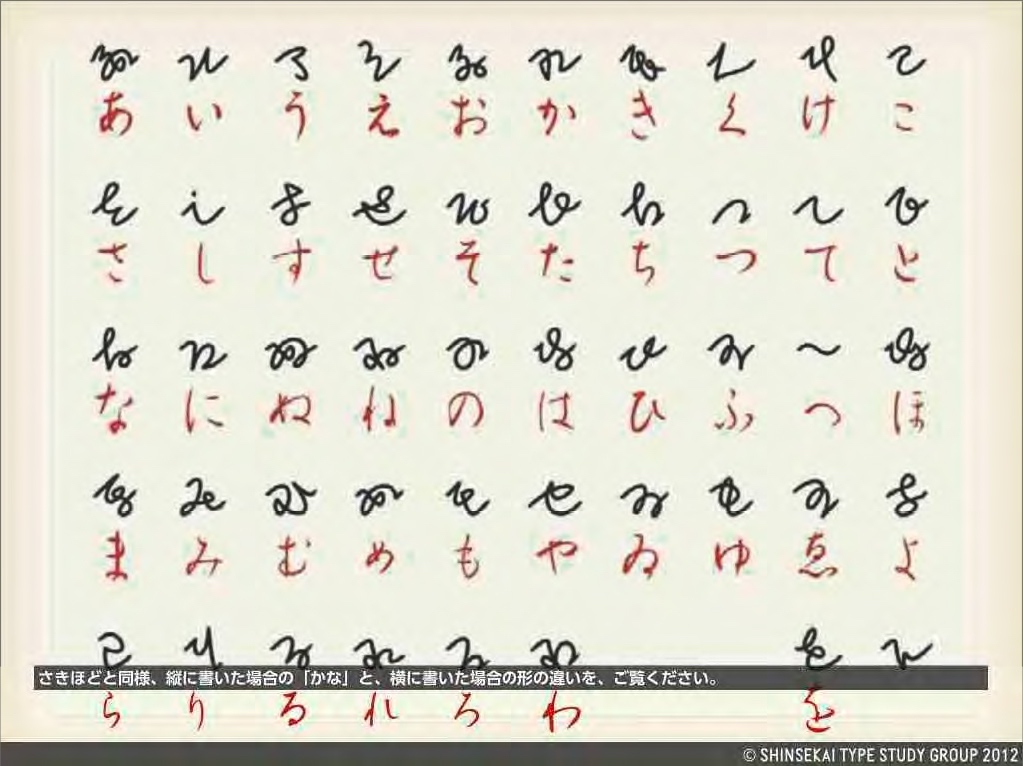 あ い う え お か き く け こ
さ し す せ そ た ち つ て と
な に ぬ ね の は ひ ふ へ ほ
ま み む め も や ゐ ゆ ゑ よ
さきほどと同様、縦に書いた場合の「かな」と、横に書いた場合の形の違いを、ご覧ください。
ら り る れ ろ わ を
© SHINSEKAI TYPE STUDY GROUP 2012